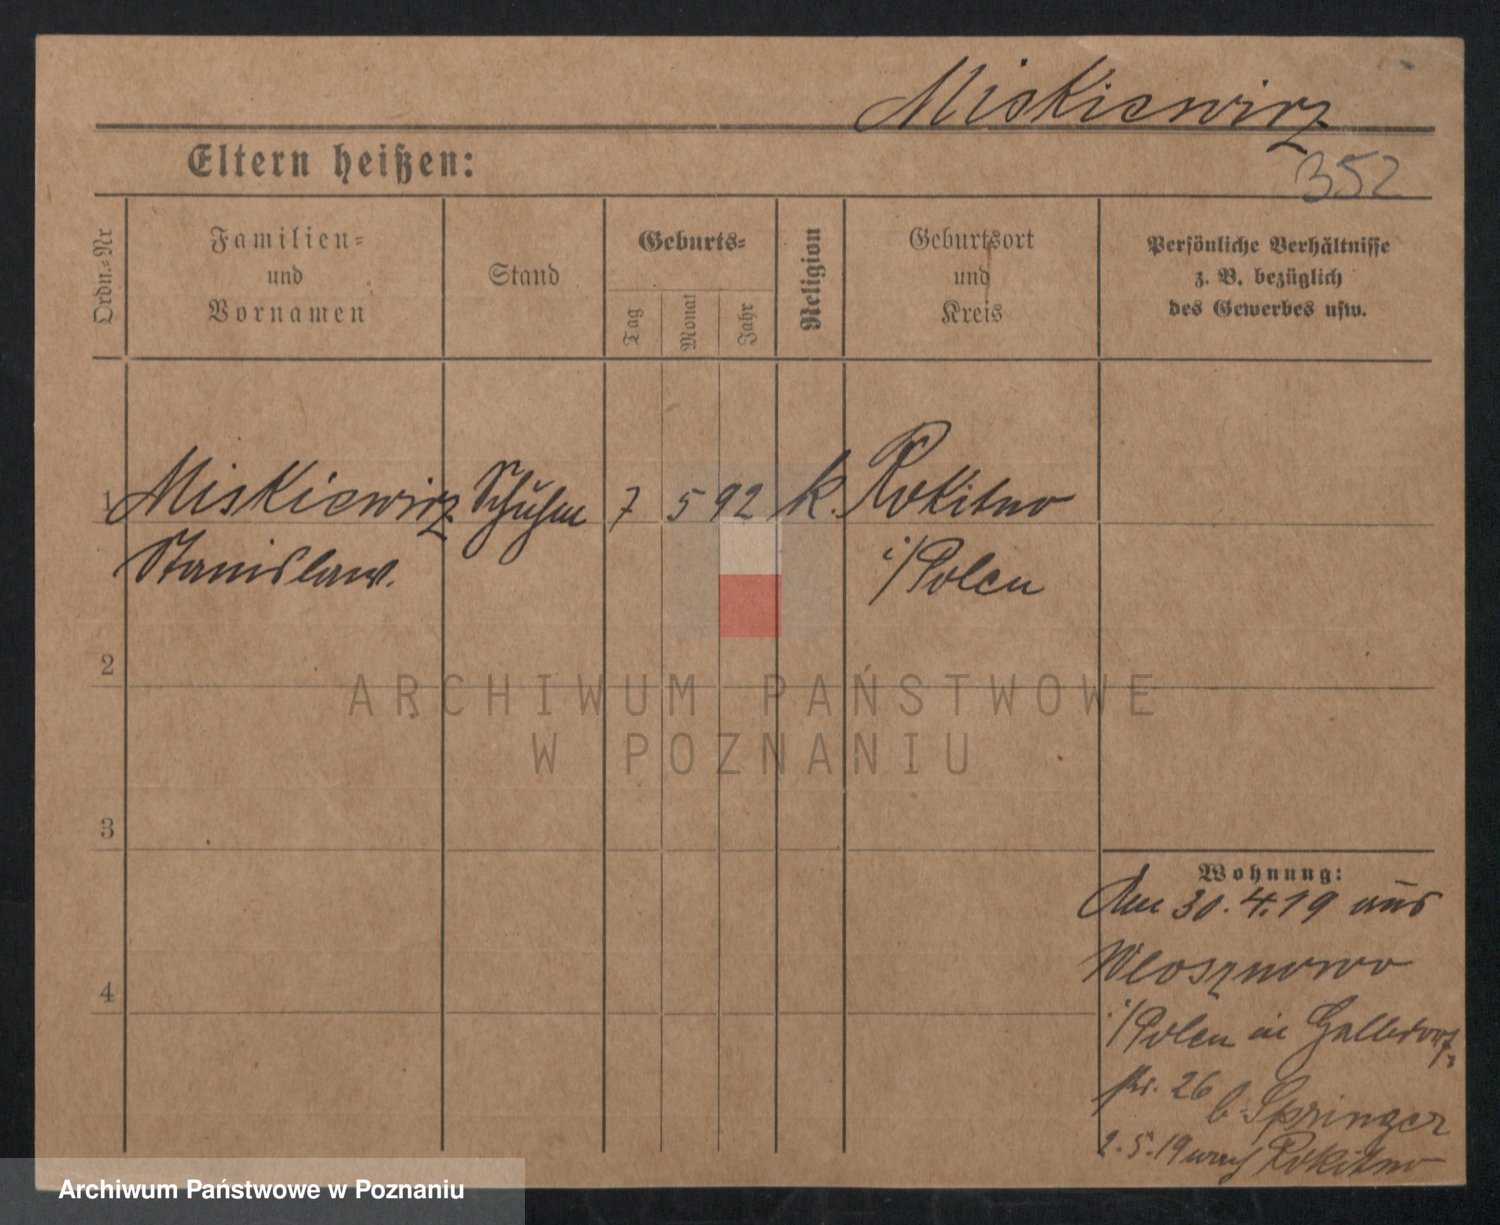 Miskiewicz
Eltern heißen:
352
Ordn.=Nr
Familien=
und
Vornamen
Stand
Geburts=
Tag
Monat
Jahr
Religion
Geburtsort
und
Kreis
Persönliche Verhältnisse
z. B. bezüglich
des Gewerbes usw.
1
Miskiewicz
Stanislaw.
Schuhm
7
5
92
k.
Rokitno
i/Polen
2
ARCHIWUM PAŃSTWOWE
W POZNANIU
3
4
Wohnung:
Am 30.4.19 aus
i/Polen in
26 b. Springer
2.5.19 nach Rokitno
Archiwum Państwowe w Poznaniu